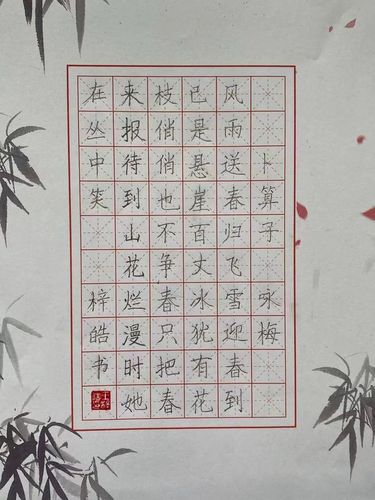 卜算子 咏梅
风雨送春归飞雪迎春到
已是悬崖百丈冰犹有花
枝俏俏也不争春只把春
来报待到山花烂漫时她
在丛中笑 梓皓书